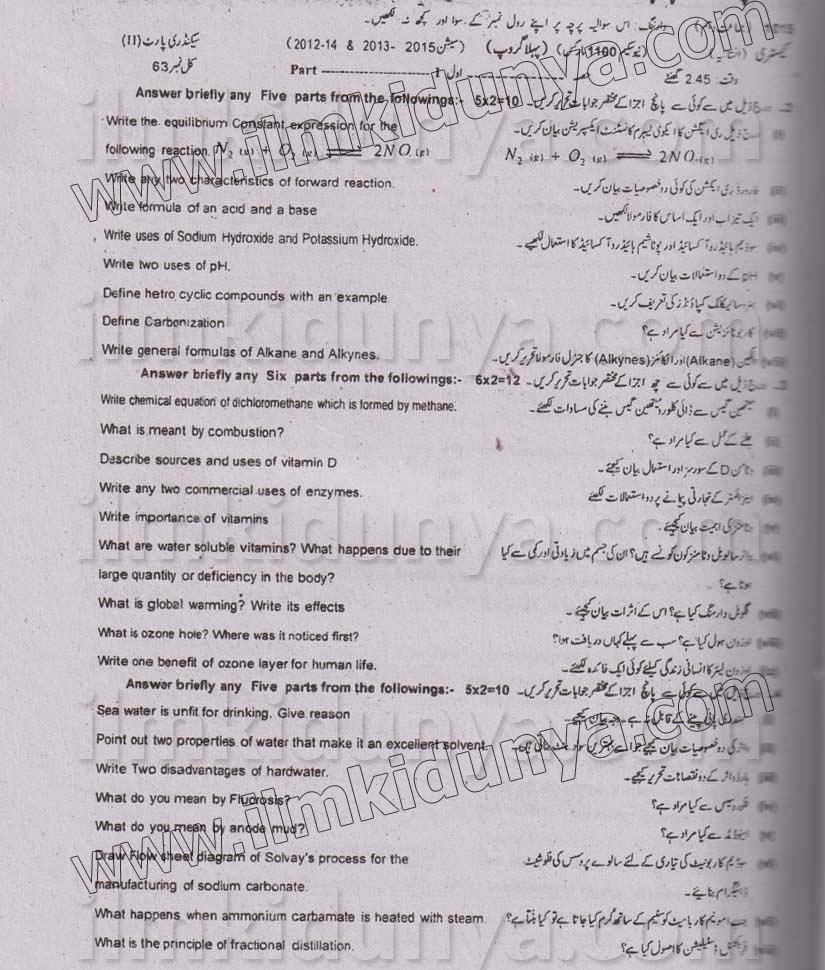 وارننگ: اس سوالیہ پرچہ پر اپنے رول نمبر کے سوا اور کچھ نہ لکھیں۔
(پہلا گروپ) (سیشن 2015-2013 & 14-2012) سیکنڈری پارٹ (II)
وقت: 2.45 گھنٹے اول Part ---- I کل نمبر 63
Answer briefly any Five parts from the followings:- 5x2=10 پانچ اجزا کے مختصر جوابات تحریر کریں۔
Write the equilibrium Constant expression for the
following reaction. N₂ (g) + O₂ (g) ⇌ 2NO (g) N₂ (g) + O₂ (g) ⇌ 2NO (g)
Write any two characteristics of forward reaction. فارورڈ ری ایکشن کی کوئی دو خصوصیات بیان کریں۔
Write formula of an acid and a base ایک تیزاب اور ایک اساس کا فارمولا لکھیں۔
Write uses of Sodium Hydroxide and Potassium Hydroxide. سوڈیم ہائیڈرو آکسائیڈ اور پوٹاشیم ہائیڈرو آکسائیڈ کا استعمال لکھیے۔
Write two uses of pH. pH کے دو استعمالات بیان کریں۔
Define hetro cyclic compounds with an example کمپاؤنڈز کی تعریف کریں۔
Define Carbonization کاربونائزیشن سے کیا مراد ہے؟
Write general formulas of Alkane and Alkynes. (Alkane) اور الکائنز (Alkynes) کا جنرل فارمولا تحریر کریں۔
Answer briefly any Six parts from the followings:- 6x2=12 ذیل میں سے کوئی سے چھ اجزا کے مختصر جوابات تحریر کریں۔
Write chemical equation of dichloromethane which is formed by methane. میتھین گیس سے ڈائی کلورو میتھین گیس بننے کی مساوات لکھئے۔
What is meant by combustion? جلنے کے عمل سے کیا مراد ہے؟
Describe sources and uses of vitamin D وٹامن D کے سورسز اور استعمال بیان کیجئے۔
Write any two commercial uses of enzymes. انزائمز کے تجارتی پیمانے پر دو استعمالات لکھئے
Write importance of vitamins وٹامنز کی اہمیت بیان کیجئے۔
What are water soluble vitamins? What happens due to their واٹر سولیوبل وٹامنز کون کونسے ہیں؟ ان کی جسم میں زیادتی اور کمی سے کیا
large quantity or deficiency in the body? ہوتا ہے؟
What is global warming? Write its effects گلوبل وارمنگ کیا ہے؟ اس کے اثرات بیان کیجئے۔
What is ozone hole? Where was it noticed first? اوزون ہول کیا ہے؟ سب سے پہلے کہاں دریافت ہوا؟
Write one benefit of ozone layer for human life. اوزون لیئر کا انسانی زندگی کیلئے کوئی ایک فائدہ لکھئے۔
Answer briefly any Five parts from the followings:- 5x2=10 پانچ اجزا کے مختصر جوابات تحریر کریں۔
Sea water is unfit for drinking. Give reason
Point out two properties of water that make it an excellent solvent.
Write Two disadvantages of hardwater. ہارڈ واٹر کے دو نقصانات تحریر کیجئے۔
What do you mean by Fluorosis? فلوروسس سے کیا مراد ہے؟
What do you mean by anode mud? سے کیا مراد ہے؟
Draw Flow sheet diagram of Solvay's process for the سوڈیم کاربونیٹ کی تیاری کے لئے سالوے پروسس کی فلوشیٹ
manufacturing of sodium carbonate. ڈائیگرام بنائیے۔
What happens when ammonium carbamate is heated with steam. جب امونیم کاربامیٹ کو سٹیم کے ساتھ گرم کیا جاتا ہے تو کیا بنتا ہے؟
What is the principle of fractional distillation. فریکشنل ڈسٹیلیشن کا اصول کیا ہے؟
www.ilmkidunya.com
ilmkidunya.com
ilmkidunya.com
ilmkidunya.com
www.ilmkidunya.com
ilmkidunya.com